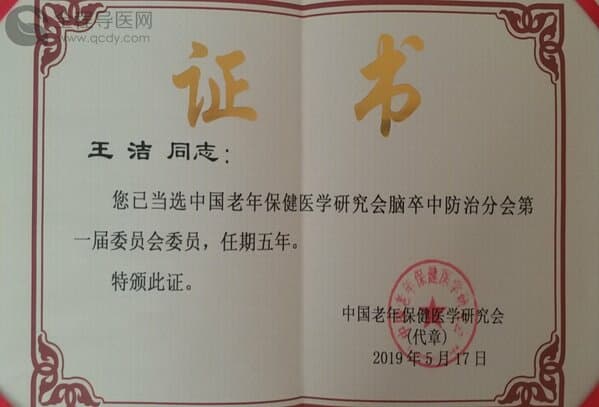 全程导医网
www.qcdy.com
证 书
王洁 同志:
您已当选中国老年保健医学研究会脑卒中防治分会第
一届委员会委员，任期五年。
特颁此证。
中国老年保健医学研究会
(代章)
2019年5月17日